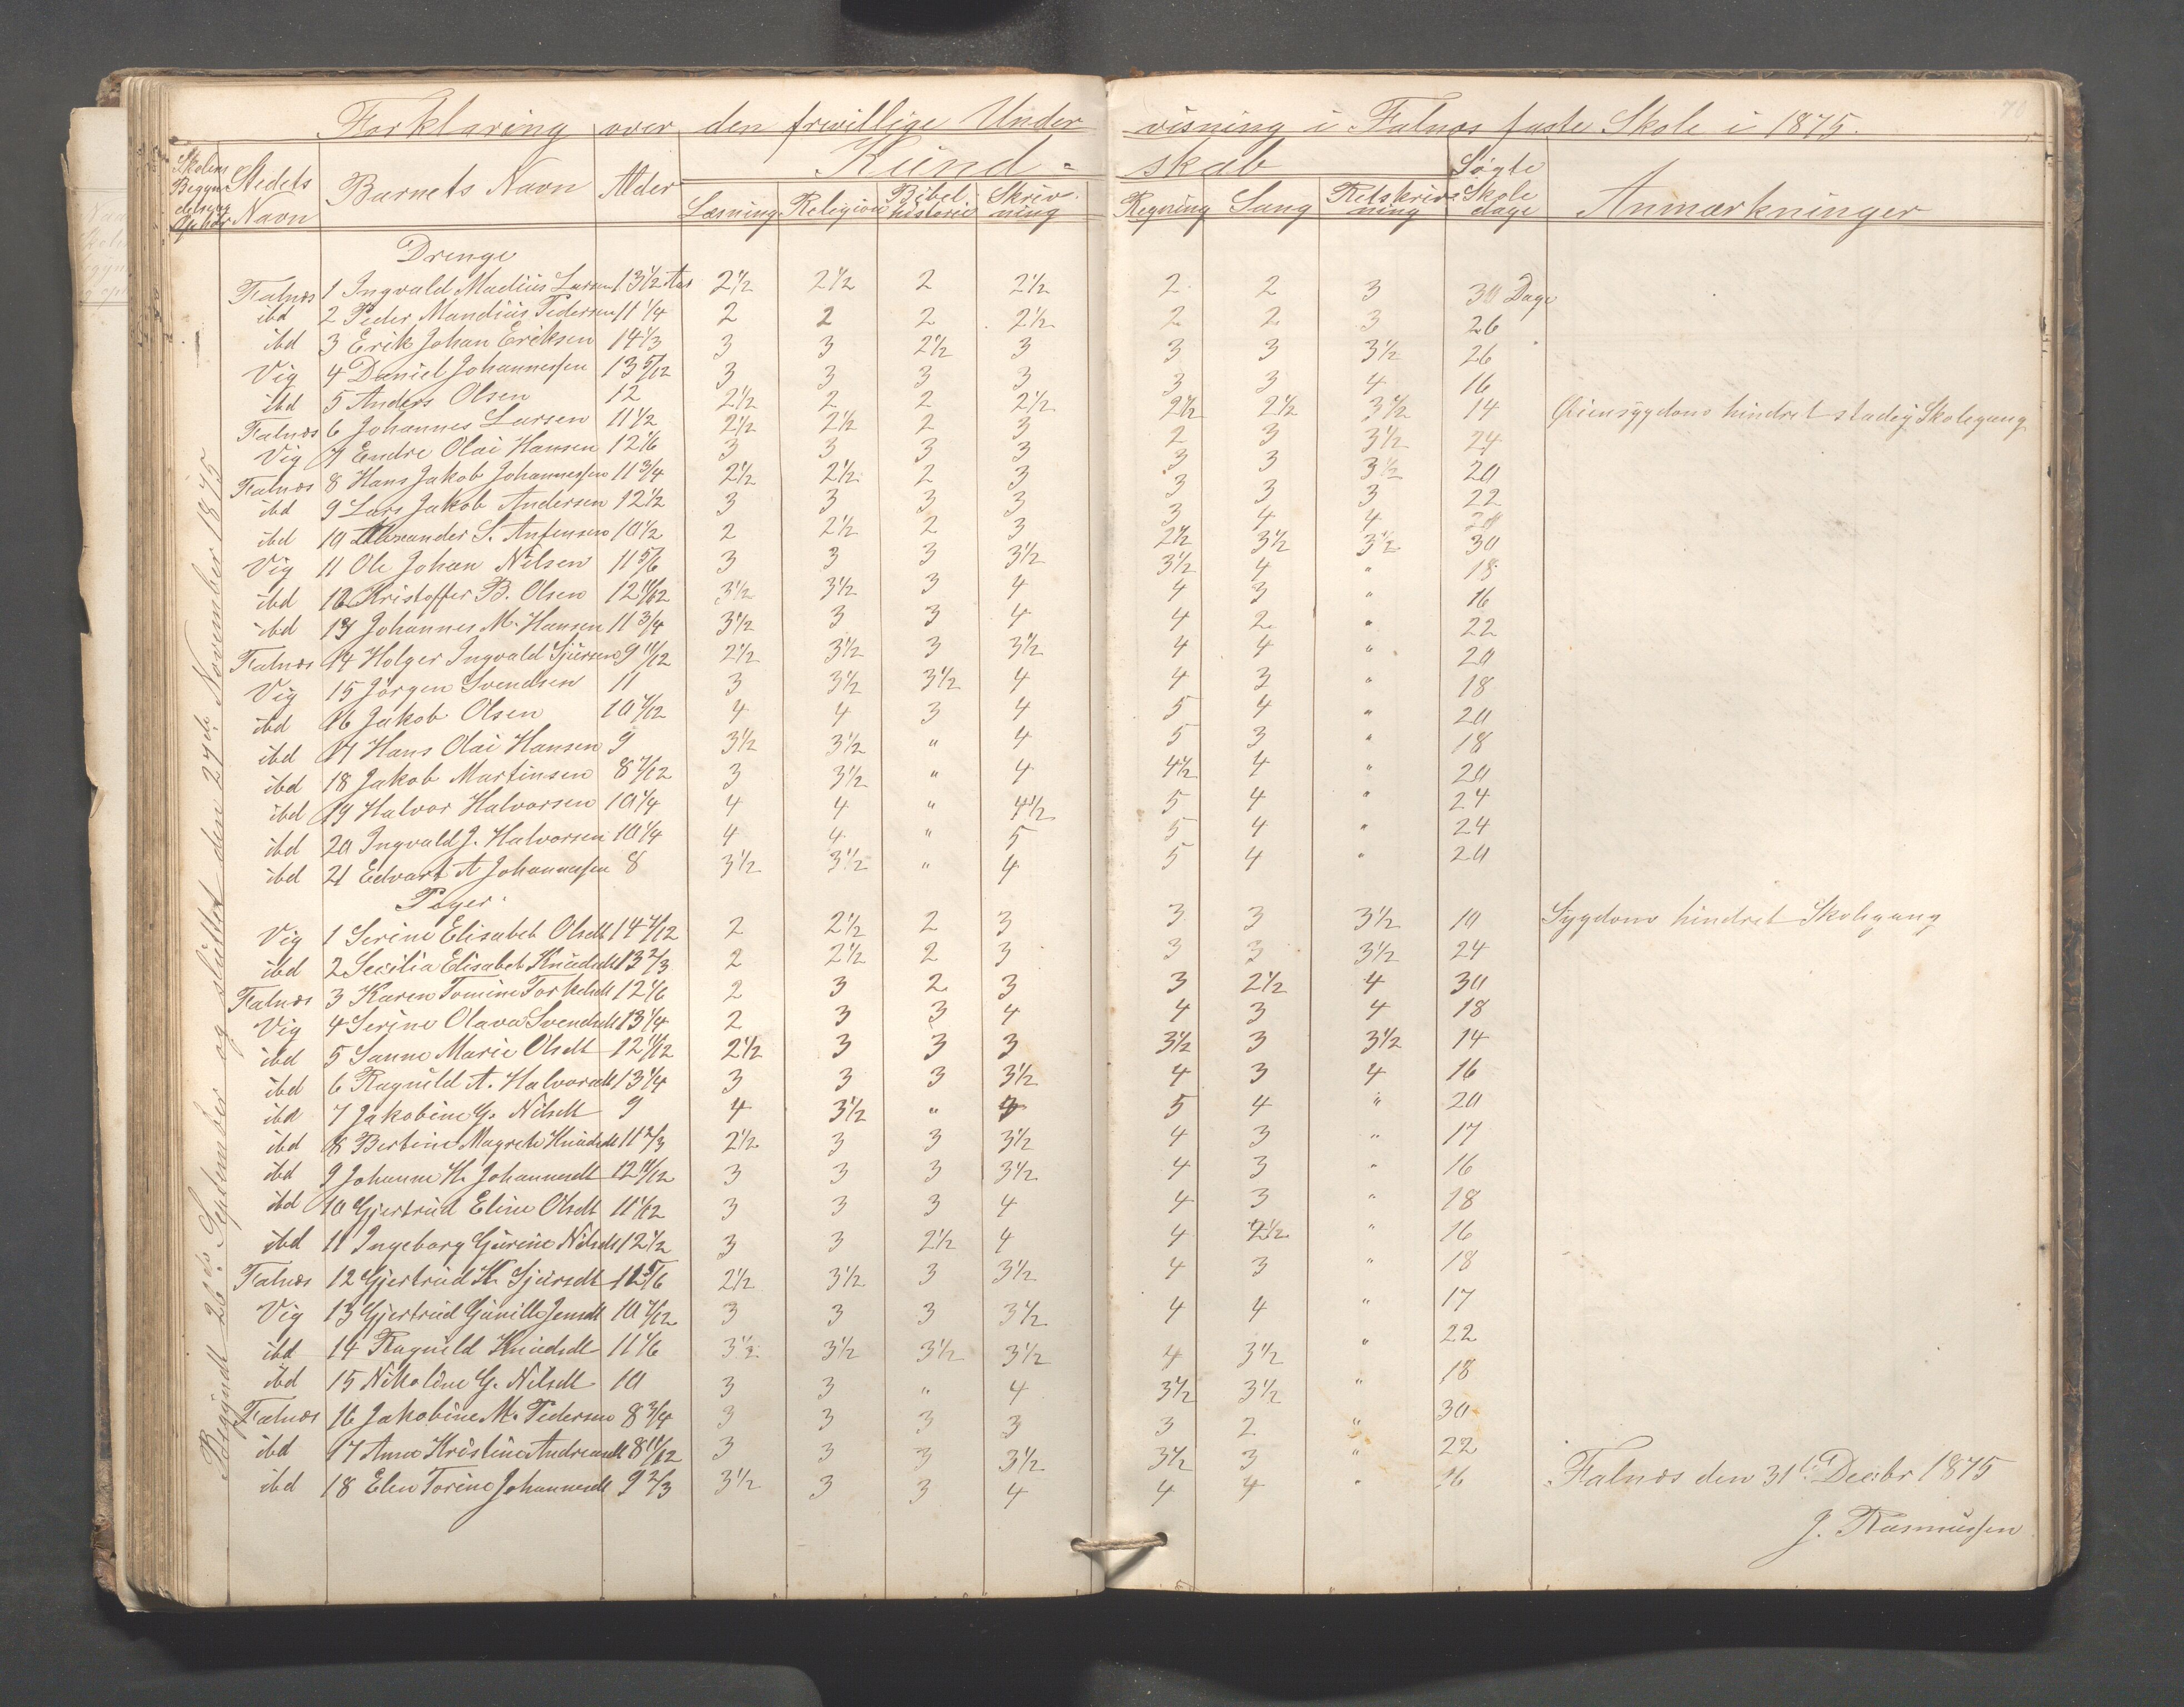 Forklaring over den friwillige Undervisning i Falnæs faste Skole i 1875.
70
Skolens Begyndelse og Ophør | Stedets Navn | Barnets Navn | Alder | Kundskab | Søgte Skoledage | Anmærkninger
Læsning | Religion | Bibelhistorie | Skrivning | Regning | Sang | Retskrivning
Begyndt 26de September og sluttet den 27de November 1875
Drenge
Falnæs 1 Ingvald Madius Larsen 13 1/2 Aar 2 1/2 2 1/2 2 2 1/2 2 2 3 30 Dage
ibd 2 Peder Mandius Pedersen 11 1/4 2 2 2 2 1/2 2 2 3 26
ibd 3 Erik Johan Eriksen 14 1/3 3 3 2 1/2 3 3 3 3 1/2 26
Vig 4 Daniel Johannessen 13 5/12 3 3 3 3 3 3 4 16
ibd 5 Anders Olsen 12 2 1/2 2 2 2 1/2 2 1/2 2 1/2 3 1/2 14 Øiensygdom hindret stadig Skolegang
Falnæs 6 Johannes Larsen 11 1/2 2 1/2 2 1/2 2 3 2 3 3 1/2 24
Vig 7 Endre Olai Hansen 12 1/6 3 3 3 3 3 3 3 1/2 20
Falnæs 8 Hans Jakob Johannessen 11 3/4 2 1/2 2 1/2 2 3 3 3 3 22
ibd 9 Lars Jakob Andersen 12 1/2 3 3 3 3 3 4 4 20
ibd 10 Alexander S. Anfensen 10 1/2 2 2 1/2 2 3 2 1/2 3 1/2 3 1/2 30
Vig 11 Ole Johan Nilsen 11 5/6 3 3 3 3 1/2 3 1/2 4 " 18
ibd 12 Kristoffer B. Olsen 12 11/12 3 1/2 3 1/2 3 4 4 3 " 16
ibd 13 Johannes M. Hansen 11 3/4 3 1/2 3 3 4 4 2 " 22
Falnæs 14 Holger Ingvald Sjursen 9 11/12 2 1/2 3 1/2 3 3 1/2 4 4 " 20
Vig 15 Jörgen Svendsen 11 3 3 1/2 3 1/2 4 4 3 " 18
ibd 16 Jakob Olsen 10 7/12 4 4 3 4 5 4 " 20
ibd 17 Hans Olai Hansen 9 3 1/2 3 1/2 " 4 5 3 " 18
ibd 18 Jakob Martinsen 8 7/12 3 3 1/2 " 4 4 1/2 4 " 20
ibd 19 Halvor Halvorsen 10 1/4 4 4 " 4 1/2 5 4 " 24
ibd 20 Ingvald J. Halvorsen 10 1/4 4 4 " 5 5 4 " 24
ibd 21 Edvart A Johannessen 8 3 1/2 3 1/2 " 4 5 4 " 20
Piger
Vig 1 Serine Elisabet Olsdt 14 7/12 2 2 1/2 2 3 3 3 3 1/2 10 Sygdom hindret Skolegang
ibd 2 Secilia Elisabet Knudsdt 13 2/3 2 2 1/2 2 3 3 3 3 1/2 24
Falnæs 3 Karen Tomine Torkelsdt 12 1/6 2 3 2 3 3 2 1/2 4 30
Vig 4 Serine Olava Svendsdt 13 1/4 2 3 3 4 4 3 4 18
ibd 5 Sanne Marie Olsdt 12 11/12 2 1/2 3 3 3 3 1/2 3 3 1/2 14
ibd 6 Ragnild A. Halvorsdt 13 1/4 3 3 3 3 1/2 4 3 4 16
ibd 7 Jakobine G. Nilsdt 9 4 3 1/2 " 4 5 4 " 20
ibd 8 Bertine Magrete Knudsdt 11 2/3 2 1/2 3 3 3 1/2 4 3 " 17
ibd 9 Johanne H. Johannesdt 12 11/12 3 3 3 3 1/2 4 3 " 16
ibd 10 Gjertrud Eline Olsdt 11 1/12 3 3 3 4 4 3 " 18
ibd 11 Ingeborg Gurine Nilsdt 12 1/2 3 3 2 1/2 4 4 2 1/2 " 16
Falnæs 12 Gjertrud K. Sjursdt 12 5/6 2 1/2 3 1/2 3 3 1/2 4 3 " 18
Vig 13 Gjertrud Gunille Jensdt 10 7/12 3 3 3 3 1/2 4 4 " 17
ibd 14 Ragnild Knudsdt 11 1/6 3 1/2 3 1/2 3 1/2 3 1/2 4 3 1/2 " 22
ibd 15 Nikoline G. Nilsdt 10 3 3 " 4 3 1/2 3 1/2 " 18
Falnæs 16 Jakobine M. Pedersen 8 3/4 3 3 3 3 3 2 " 30
ibd 17 Anna Kristine Andreasdt 8 11/12 3 3 3 3 1/2 3 1/2 3 " 22
ibd 18 Elen Torine Johannesdt 9 2/3 3 1/2 3 3 4 4 4 " 16
Falnæs den 31te Decbr 1875
J. Rasmussen